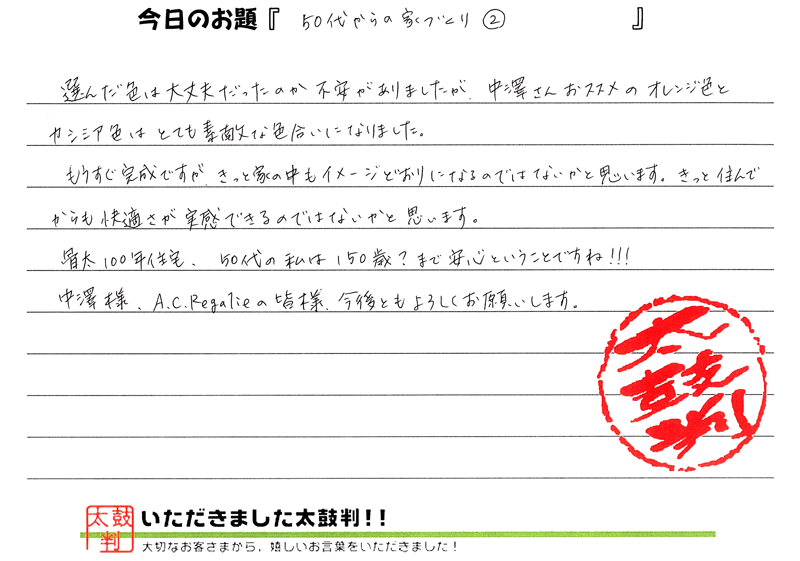 今日のお題『 50代からの家づくり ② 』
選んだ色は大丈夫だったのか 不安がありましたが、中澤さんおススメの オレンジ色と
カシミア色は とても素敵な色合いになりました。
もうすぐ完成ですが、きっと家の中もイメージどおりになるのではないかと思います。きっと住んで
からも快適さが実感できるのではないかと思います。
骨太100年住宅、50代の私は150歳?まで安心ということですね!!!
中澤様、A.C.Regalieの皆様、今後ともよろしくお願いします。
太鼓判
太鼓判
いただきました太鼓判!!
大切なお客さまから、嬉しいお言葉をいただきました!